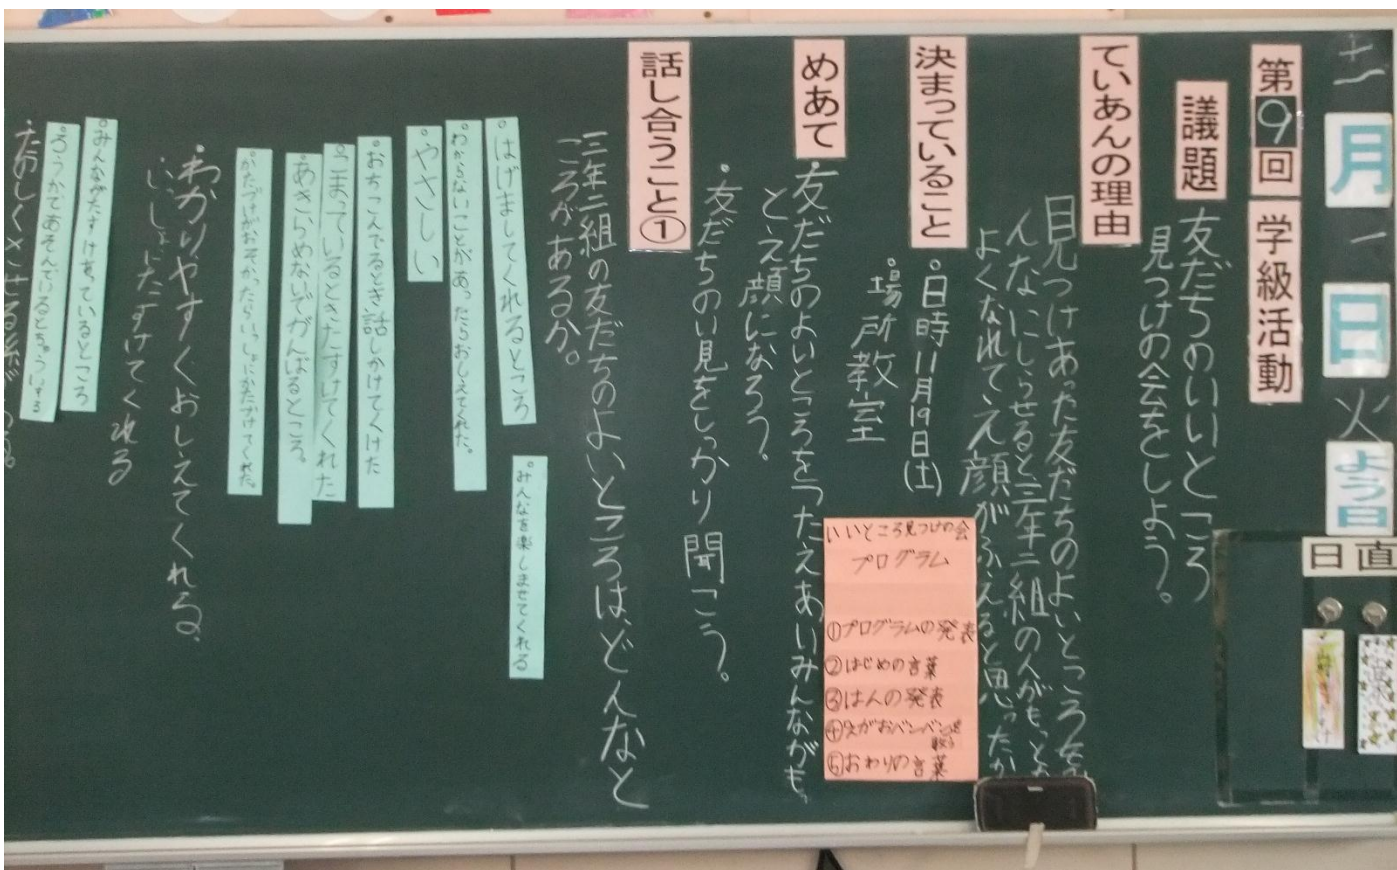 十一月一日火よう日
日直
第9回 学級活動
議題
友だちのいいところ
見つけの会をしよう。
ていあんの理由
見つけあった友だちのよいところを
んなにしらせると三年二組の人がもっとな
よくなれてえ顔がふえると思ったか
決まっていること
・日時11月19日(土)
場所教室
いいところ見つけの会
プログラム
①プログラムの発表
②はじめの言葉
③はんの発表
④えがおバンバンを
歌う
⑤おわりの言葉
めあて
・友だちのよいところをつたえあいみんながもっ
とえ顔になろう。
・友だちのい見をしっかり聞こう。
話し合うこと①
三年二組の友だちのよいところは、どんなと
ころがあるか。
・はげましてくれるところ
・みんなを楽しませてくれる
・わからないことがあったらおしえてくれた。
・やさしい
・おちこんでるとき話しかけてくれた
・こまっているときたすけてくれた
・あきらめないでがんばるところ。
・かたづけがおそかったらいっしょにかたづけてくれた。
・わかりやすくおしえてくれる。
いっしょにたすけてくれる
・みんながたすけあっているところ
・ろうかであそんでいるとちゅういする
・たのしくさせる係が